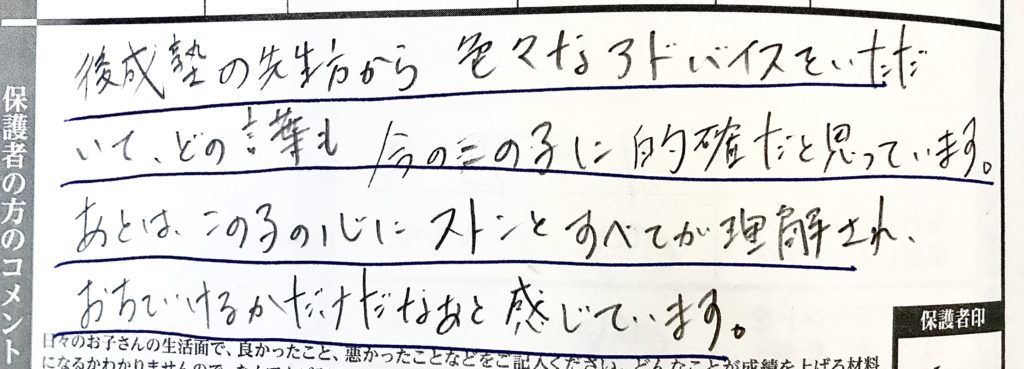 保護者の方のコメント
後成塾の先生方から 色々なアドバイスをいただ
いて、どの言葉も 今のこの子に的確だと思っています。
あとは、この子の心に ストンと すべてが理解され、
おちていけるかだけだなあと 感じています。
保護者印
日々のお子さんの生活面で、良かったこと、悪かったことなどをご記入ください。どんなことが成績を上げる材料
になるかわかりませんので、